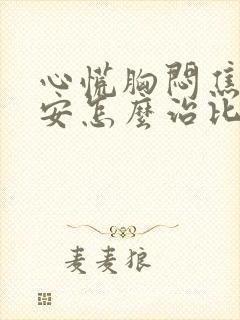 心慌胸悶焦
安怎麼治比
麦麦狼